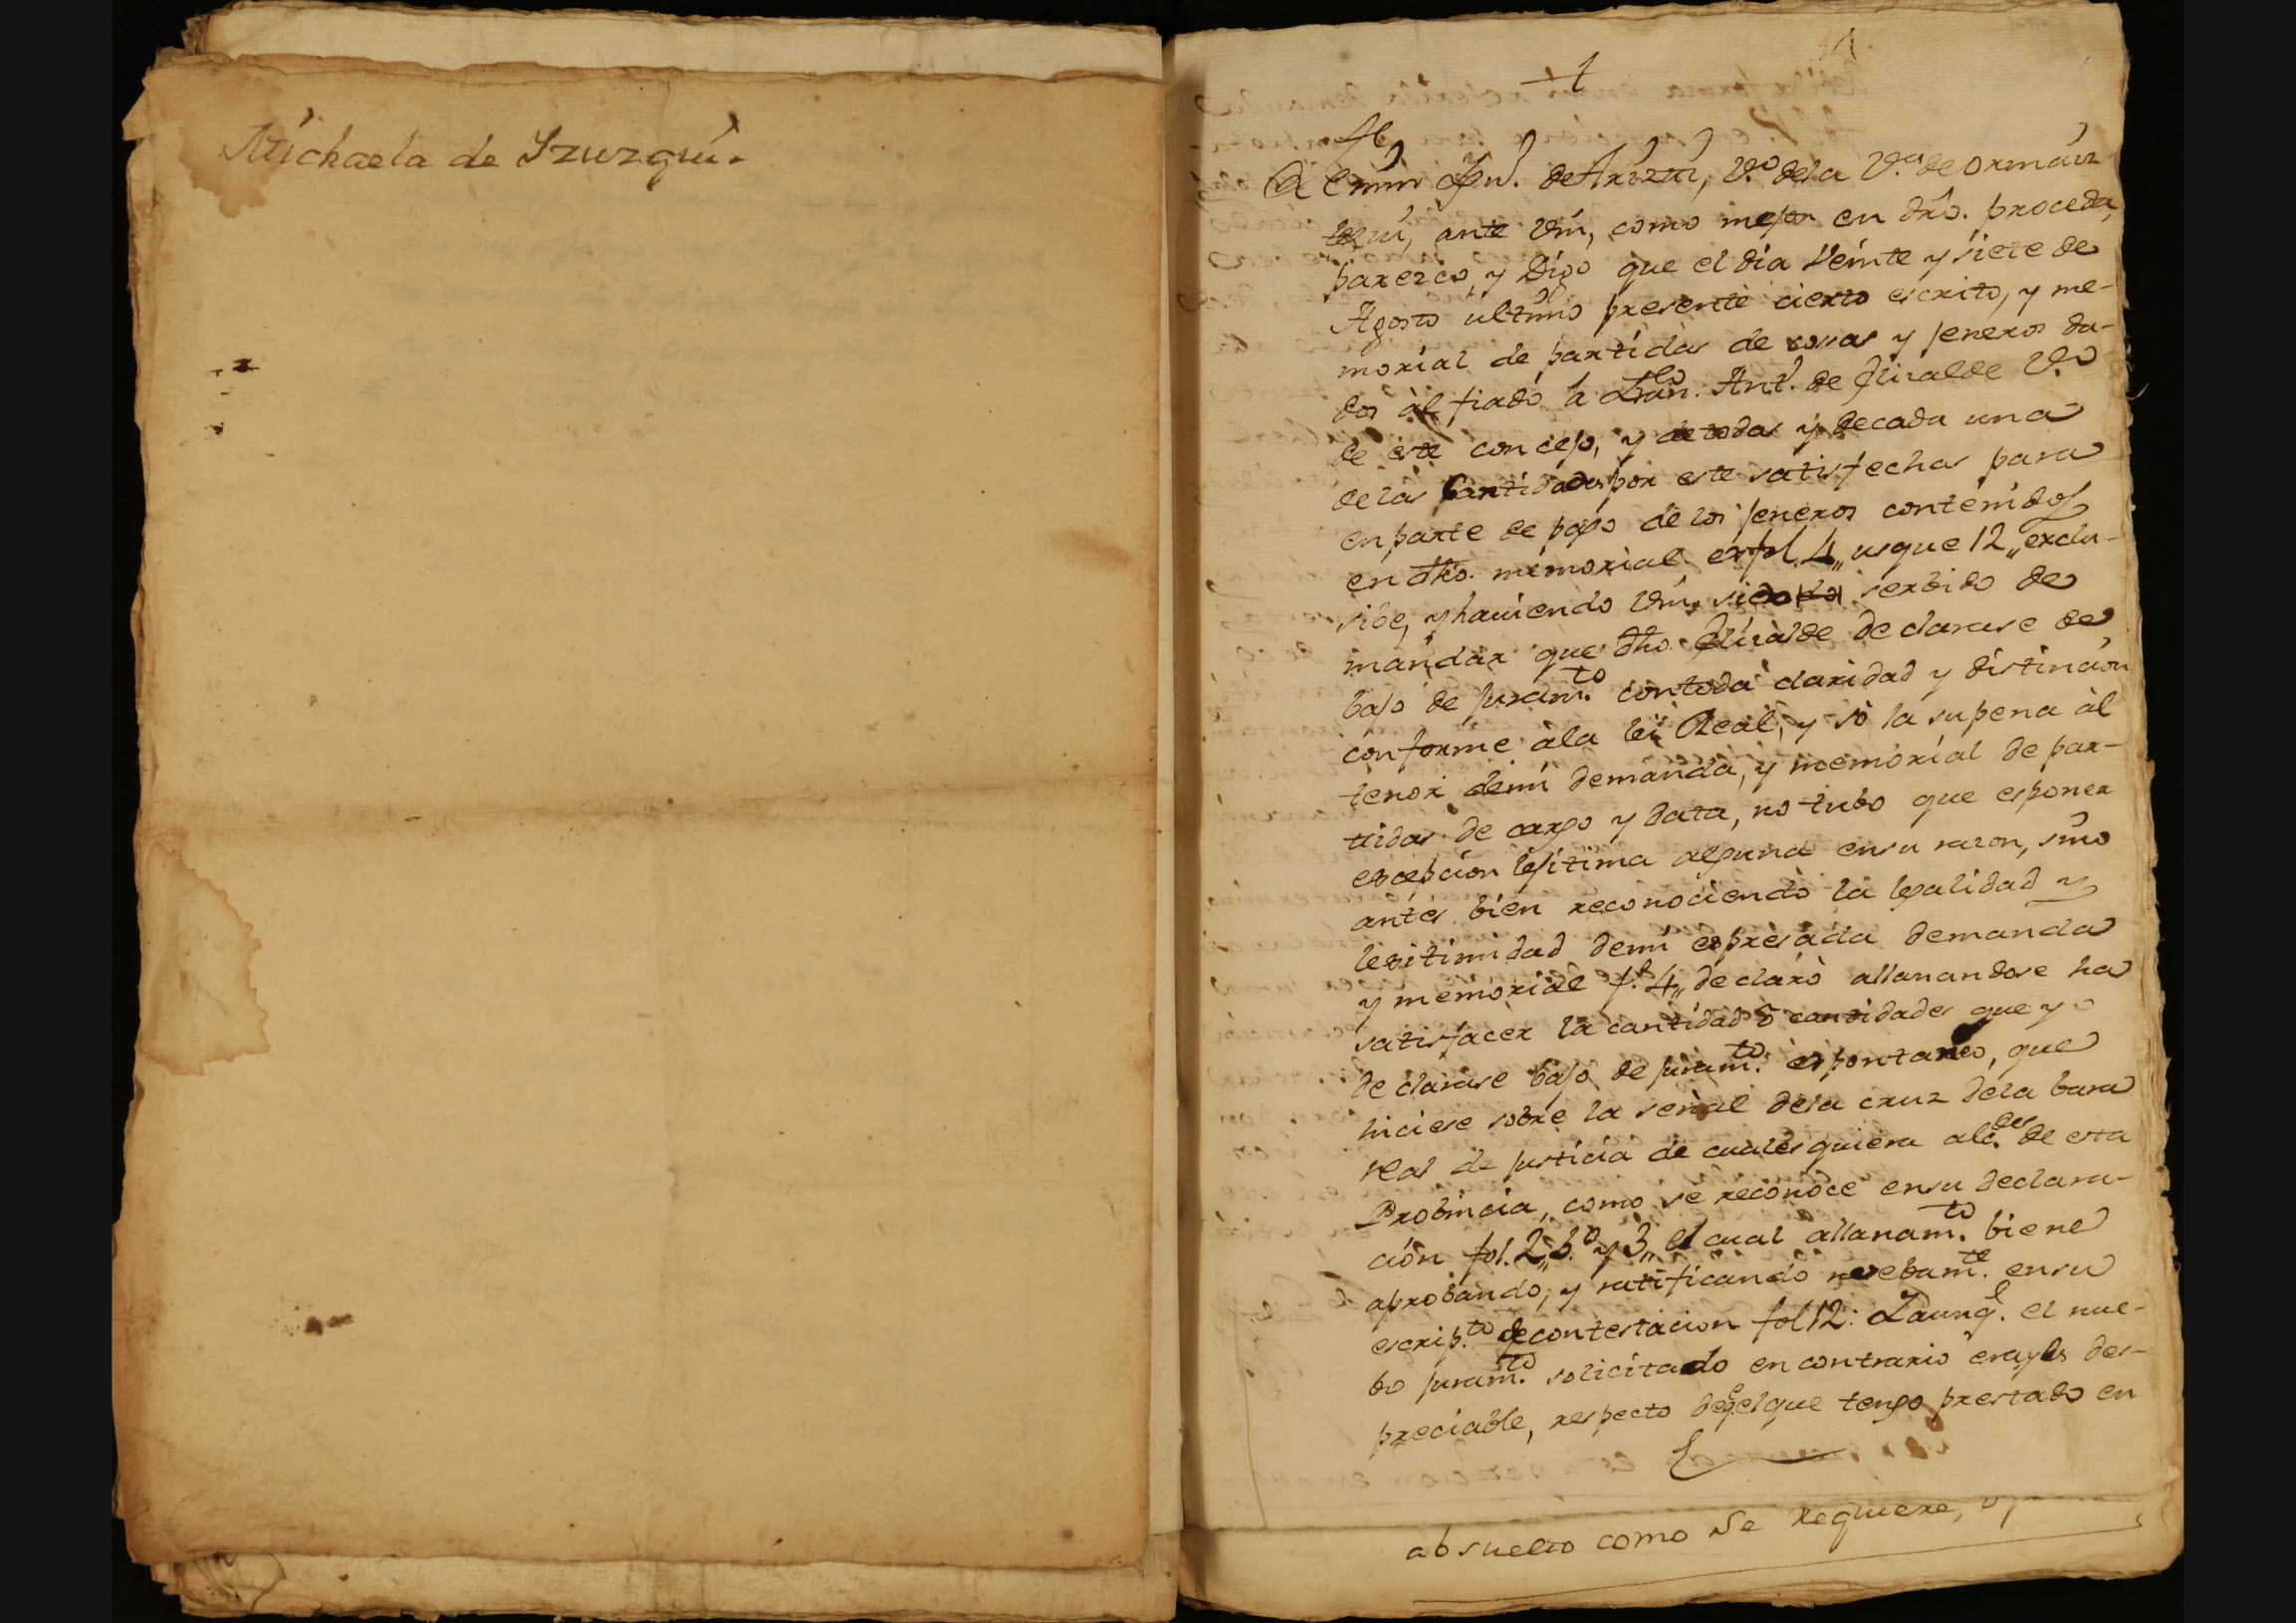 Michaela de Yzuzqui.
Juº. de Arizti, Vº. dela Vª. de Ormaiz
tegui, ante Vm, como mejor en dro. proceda,
parezco, y Digo que el dia Veinte y siete de
Agosto ultimo presentè cierto escrito, y me-
morial de partidas de cossas y jeneros da-
dos àl fiado à Franco. Antº. de Elizalde Vº
de este concejo, y de todas y decada una
de las Cantidades por este satisfechas para
en parte de pago de los jeneros contenidos
en dho. memorial exfol. 4,, usque 12,, exclu-
sibe, y haviendo Vm. sido serbido de
mandar que dho. Elizalde declarase de
bajo de juramto. contoda claridad y distincion
conforme àla lei Real, y sò la supena àl
tenor demi demanda, y memorial de par-
tidas de cargo y data, no tubo que esponer
escepcion lejitima alguna ensu razon, sino
antes bien reconociendo la legalidad y
legitimidad demi espresada demanda
y memorial fl. 4,, declarò allanandose ha
satisfacer la cantidad ò cantidades que yo
declarase bajo de juramto. espontaneo, que
hiciese sobre la señal dela cruz dela bara
real de justicia de cualesquiera alcdes. de esta
Probincia, como se reconoce ensu declara-
ción fol. 2,, bº. y 3,, el cual allanamto. biene
aprobando, y ratificando nuebamte. ensu
escripto. de contestacion fol 12: Zaunql. el nue-
bo juramto. solicitado en contrario era y es des-
preciable, respecto deqe el que tengo prestado en
absuelto como se requiere,